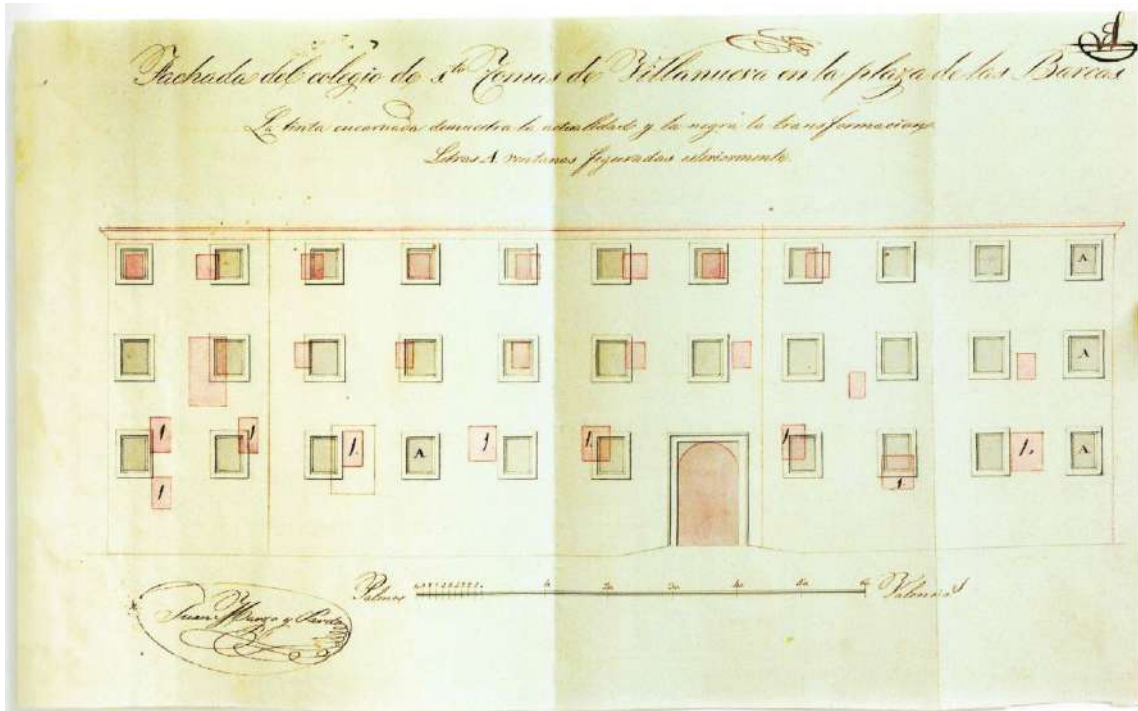 A
Fachada del colegio de Sto Tomas de Villanueva en la plaza de las Barcas
La tinta encarnada demuestra la actualidad y la negra la transformacion
Letras A. ventanas figuradas exteriormente.
A
A
1 1 1. A 1. 1. 1 1. A
1 1.
10 20 30 40 50 60
Palmos Valencias
Juan y Pardo